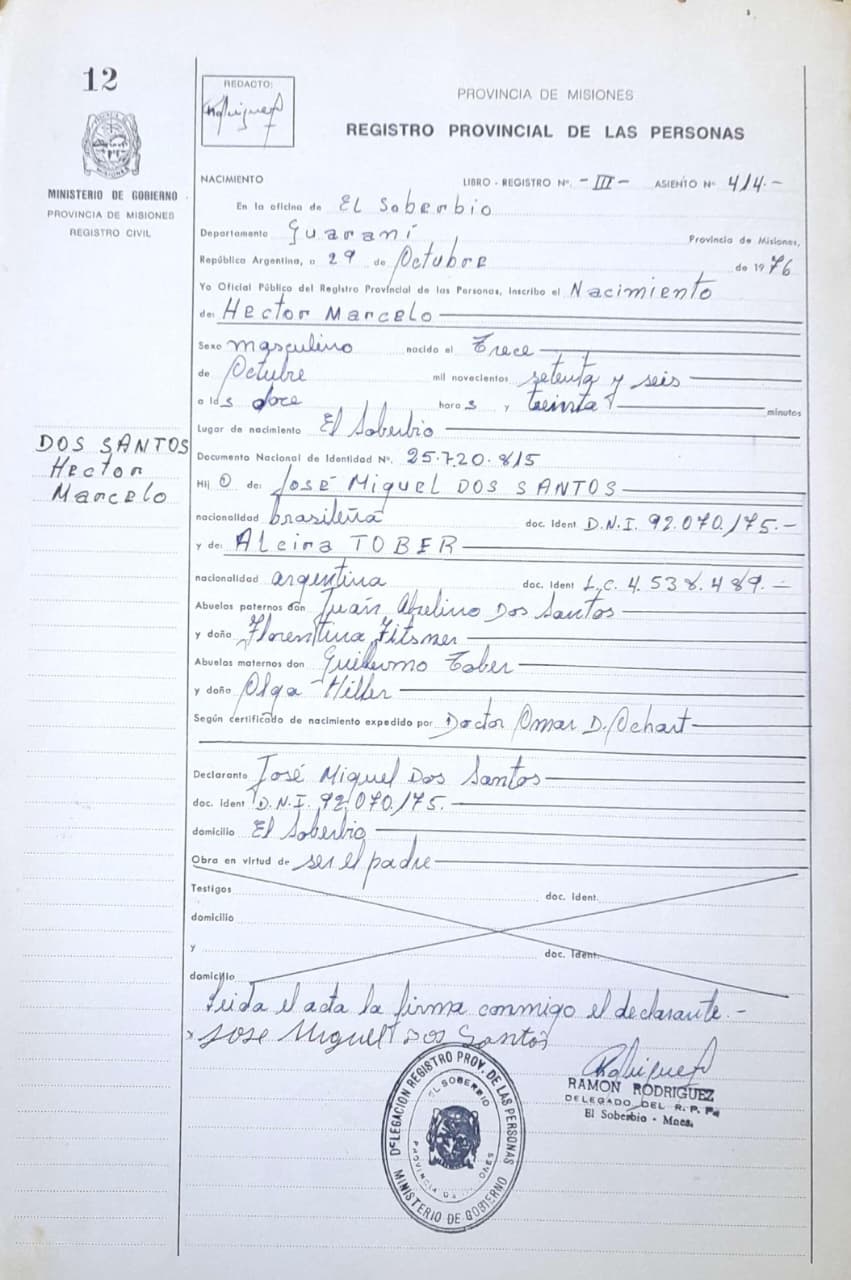 12
MINISTERIO DE GOBIERNO
PROVINCIA DE MISIONES
REGISTRO CIVIL
DOS SANTOS
Hector
Marcelo
REDACTO:
PROVINCIA DE MISIONES
REGISTRO PROVINCIAL DE LAS PERSONAS
NACIMIENTO LIBRO - REGISTRO Nº. - III - ASIENTO Nº 414.-
En la oficina de EL Soberbio
Departamento Guaraní Provincia de Misiones,
República Argentina, a 29 de Octubre de 1976
Yo Oficial Público del Registro Provincial de las Personas, inscribo el Nacimiento
de: Hector Marcelo
Sexo masculino nacido el Trece
de Octubre mil novecientos setenta y seis
a las doce horas y treinta minutos
Lugar de nacimiento El Soberbio
Documento Nacional de Identidad Nº. 25.720.815
Hijo de: José Miguel DOS SANTOS
nacionalidad brasileña doc. Ident D.N.I. 92.070.175.-
y de: Alcira TOBER
nacionalidad argentina doc. Ident L.C. 4.538.489.-
Abuelos paternos don Juan Avelino Dos Santos
y doña Florentina
Abuelos maternos don Guillermo Tober
y doña Olga Hiller
Según certificado de nacimiento expedido por Doctor Omar D. Ochart
Declarante José Miguel Dos Santos
doc. Ident D.N.I. 92.070.175.
domicilio El Soberbio
Obra en virtud de ser el padre
Testigos doc. Ident.
domicilio
y doc. Ident.
domicilio
Leida el acta la firma conmigo el declarante.-
x Jose Miguel Dos Santos
RAMON RODRIGUEZ
DELEGADO DEL R. P. P.
El Soberbio - Mnes.
DELEGACION REGISTRO PROV. DE LAS PERSONAS
EL SOBERBIO
PROVINCIA DE
MINISTERIO DE GOBIERNO